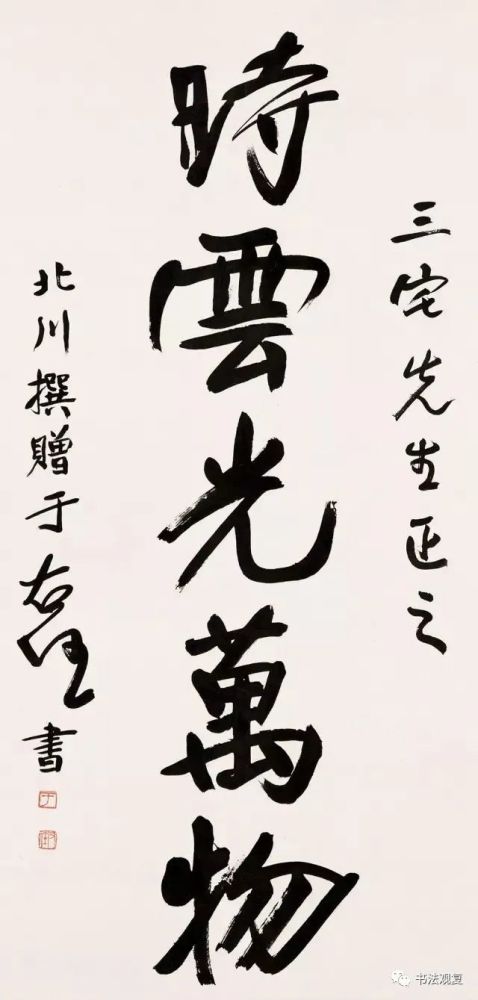 三宅先生正之
時雲光萬物
北川撰贈于右任書
书法观复